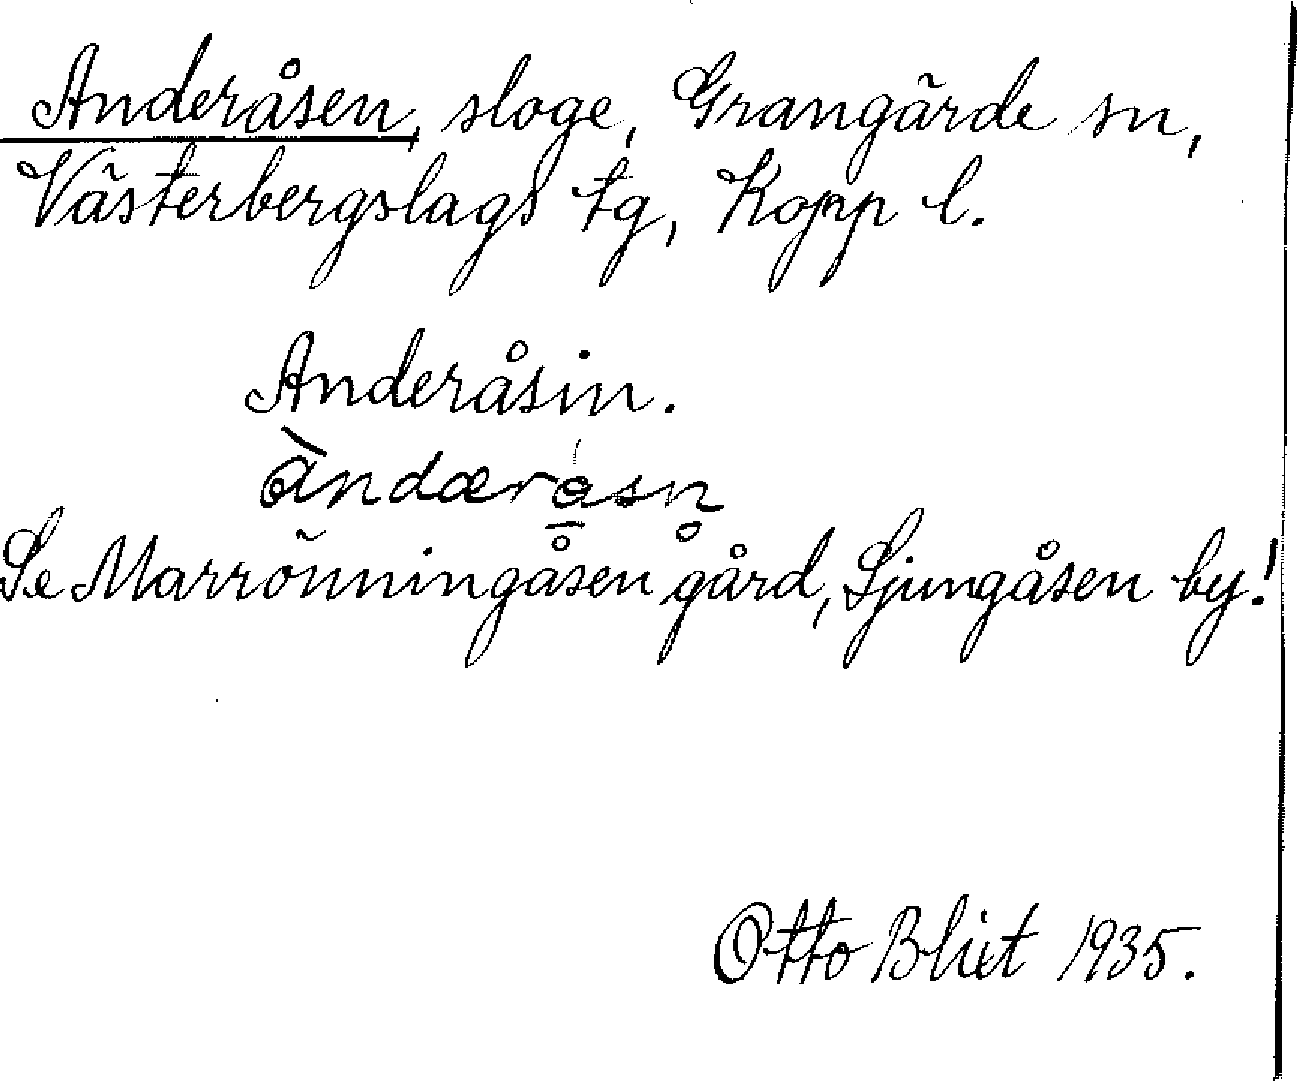 Anderåsen, sloge, Grangärde sn,
Västerbergslags tg, Kopp l.
Anderåsin.
àndæråsn̥
Se Marrönningåsen gård, Ljungåsen by!
Otto Blixt 1935.